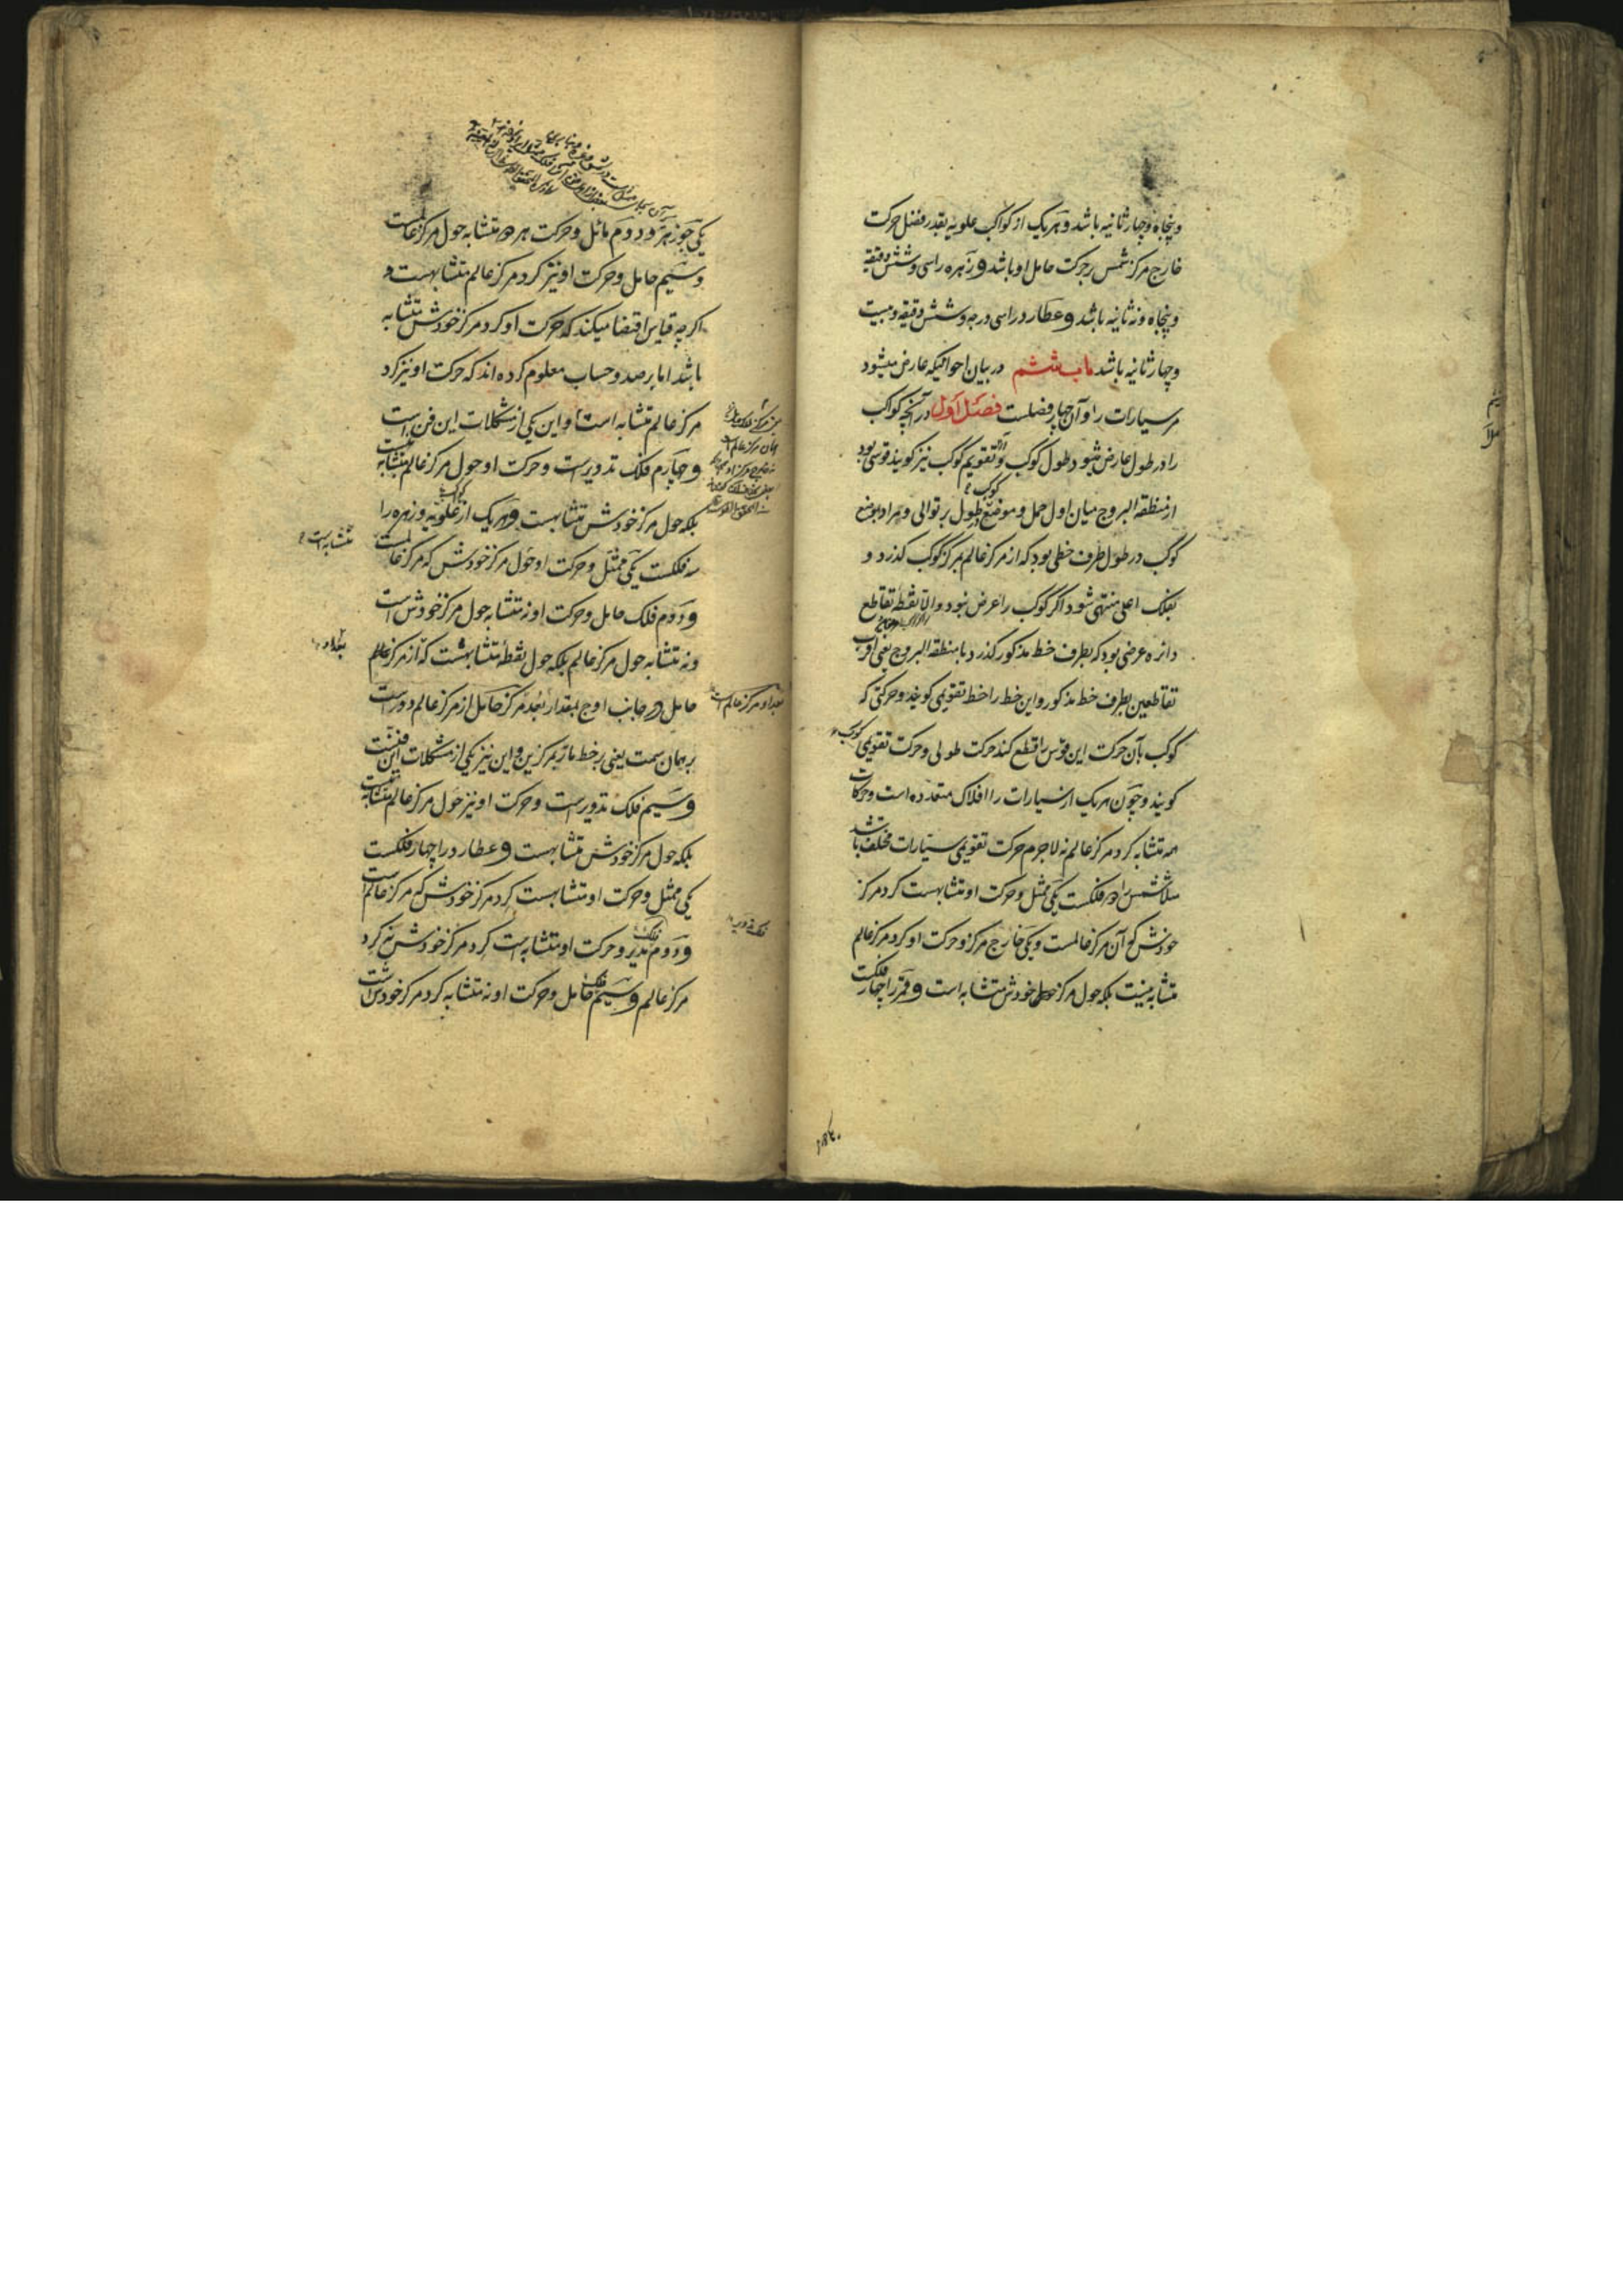 وپنجاه وچهار ثانیه باشد وهریک از کواکب علویه بقدر فضل حرکت
خارج مرکز شمس بر حرکت حامل او باشد و زهره را سی وشش دقیقه
وپنجاه ونه ثانیه باشد و عطارد را سی درجه وشش دقیقه وبیست
وچهار ثانیه باشد باب ششم در بیان احوالیکه عارض میشود
مر سیارات را و آن چهار فصلست فصل اول در آنچه کواکب
را در طول عارض شود طول کوکب و آنرا تقویم کوکب نیز کویند قوسی بود
از منطقه البروج میان اول حمل و موضع کوکب در طول بر توالی و مراد بموضع
کوکب در طول طرف خطی بود که از مرکز عالم بمرکز کوکب کذرد و
بفلک اعلی منتهی شود اکر کوکب را عرض نبود والا نقطه تقاطع
دائره عرضی بود که بطرف خط مذکور کذرد با منطقه البروج یعنی اقرب
تقاطعین بطرف خط مذکور واین خط را خط تقویمی کویند وحرکتی که
کوکب بآن حرکت این قوس را قطع کند حرکت طولی وحرکت تقویمی کوکب
کویند و چون هریک از سیارات را افلاک متعدده است وحرکات
همه متشابه کرد مرکز عالم نه لاجرم حرکت تقویمی سیارات مختلف باشد
مثلا شمس را دو فلکست یکی ممثل و حرکت او متشابهست کرد مرکز
خودش که آن مرکز عالمست ویکی خارج مرکز وحرکت او کرد مرکز عالم
متشابه نیست بلکه حول مرکز خودش متشابه است و قمر را چهار فلکست
یکی جوزهر ودوم مائل وحرکت هر دو متشابه حول مرکز عالمست
وسیم حامل وحرکت او نیز کرد مرکز عالم متشابهست و
اکرچه قیاس اقتضا میکند که حرکت او کرد مرکز خودش متشابه
باشد اما برصد وحساب معلوم کرده اند که حرکت او نیز کرد
مرکز عالم متشابه است واین یکی از مشکلات این فن است
و چهارم فلک تدویرست وحرکت او حول مرکز عالم متشابه نیست
بلکه حول مرکز خودش متشابهست و هریک از کواکب علویه وزهره را
سه فلکست یکی ممثل وحرکت او حول مرکز خودش که مرکز عالمست متشابه است
ودوم فلک حامل وحرکت او نه متشابه حول مرکز خودش است
ونه متشابه حول مرکز عالم بلکه حول نقطه متشابهست که از مرکز عالم
حامل در جانب اوج بمقدار بعد مرکز حامل از مرکز عالم دورست
بر همان سمت یعنی بر خط مار بمرکزین واین نیز یکی از مشکلات این فنست
وسیم فلک تدویرست وحرکت او نیز حول مرکز عالم متشابه نیست
بلکه حول مرکز خودش متشابهست و عطارد را چهار فلکست
یکی ممثل وحرکت او متشابهست کرد مرکز خودش که مرکز عالم است
ودوم فلک مدیر وحرکت او متشابه است کرد مرکز خودش نه کرد
مرکز عالم وسیم فلک حامل وحرکت او نه متشابه کرد مرکز خودش است